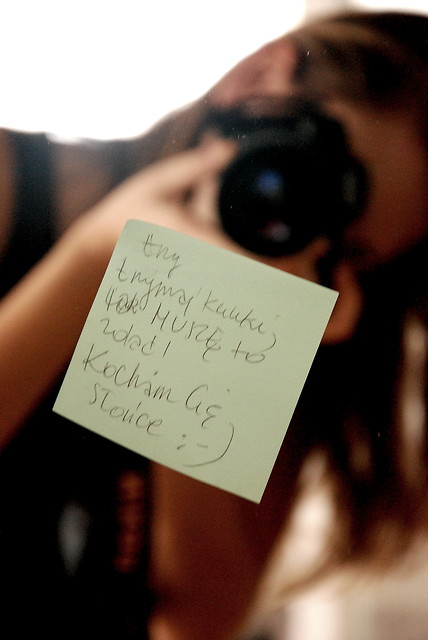 trzy
trzymaj kciuki,
MUSZĘ to
zdać!
Kocham Cię
Słońce ;-)